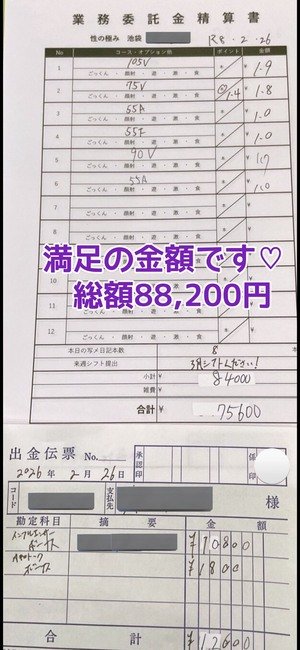 業務委託金精算書
性の極み 池袋
R8.2.26
No コース・オプション他 ポイント 金額
1 105V ¥1.9
ごっくん ・ 顔射 ・ 遊 ・ 激 ・ 食
2 75V 1.4 ¥1.8
ごっくん ・ 顔射 ・ 遊 ・ 激 ・ 食
3 55A ¥1.0
ごっくん ・ 顔射 ・ 遊 ・ 激 ・ 食
4 55F ¥1.0
ごっくん ・ 顔射 ・ 遊 ・ 激 ・ 食
5 90V
ごっくん ・ 顔射 ・ 遊 ・ 激 ・ 食
6 55A ¥1.0
ごっくん ・ 顔射 ・ 遊 ・ 激 ・ 食
7 ¥
ごっくん ・ 顔射 ・ 遊 ・ 激 ・ 食
8 ¥
満足の金額です♡
総額88,200円
10
11
ごっくん ・ 顔射 ・ 遊 ・ 激 ・ 食
12 ¥
ごっくん ・ 顔射 ・ 遊 ・ 激 ・ 食
本日の写メ日記本数 8
来週シフト提出 3月シフトください!
小計 ¥ 84000
雑費 ¥
合計 ¥ 75600
出金伝票 No. 承認印 係印
2026年2月26日
コード 支払先 様
勘定科目 摘要 金額
インフルエンサーボーナス ¥10800
ボーナス ¥1800
合計 ¥12600